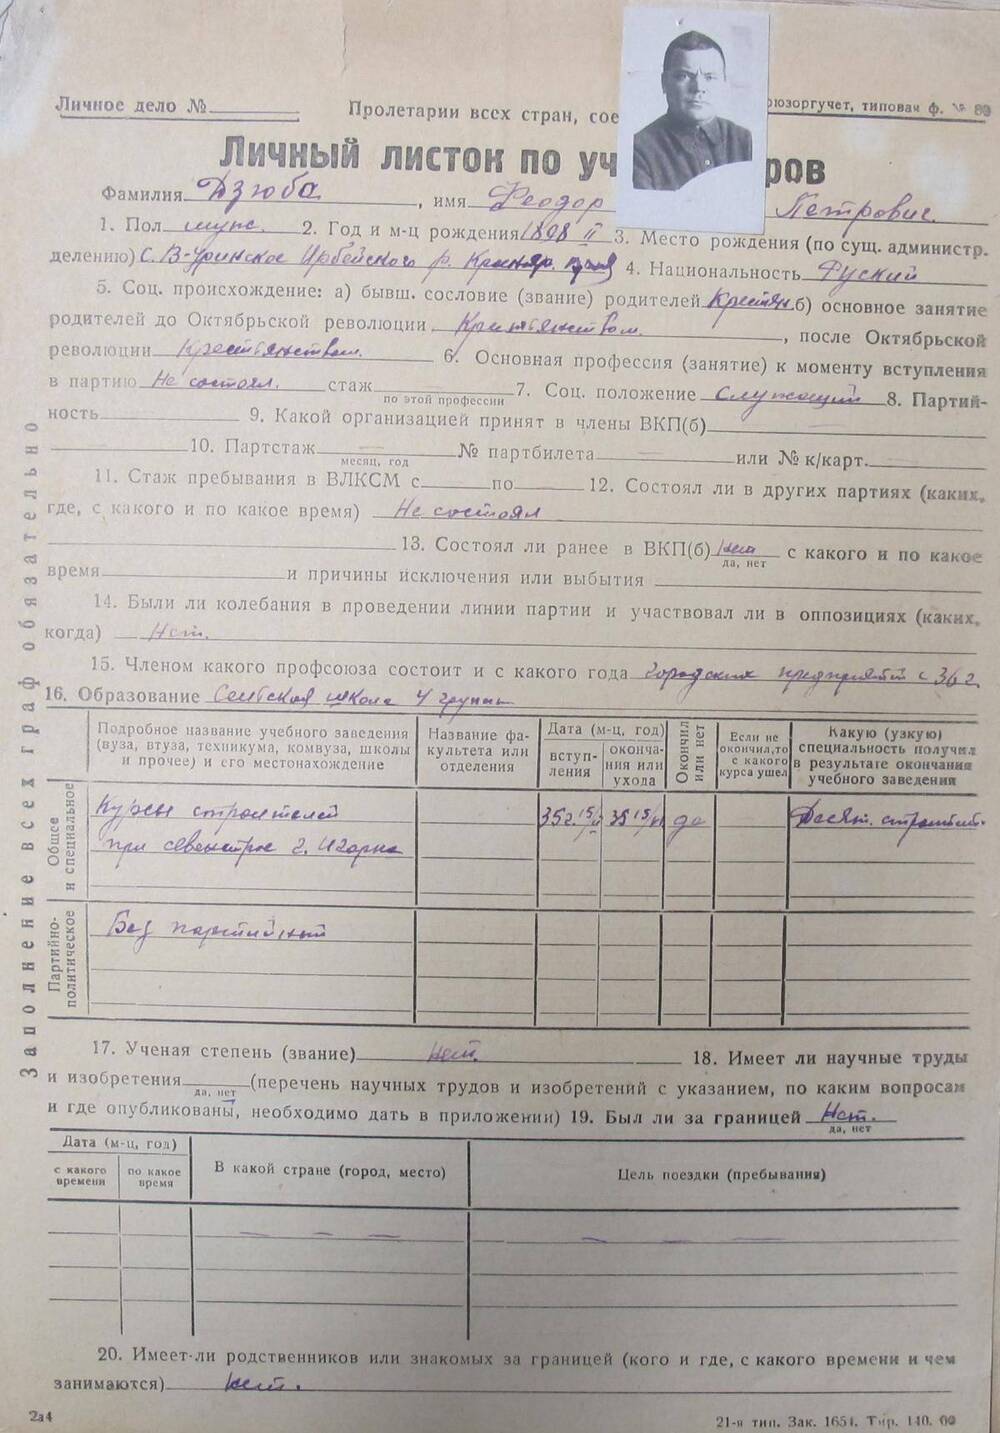 Личное дело №
Пролетарии всех стран, сое
юзоргучет, типовая ф. № 89
Личный листок по уч ров
Фамилия Дзюба, имя Феодор Петрович.
1. Пол муж. 2. Год и м-ц рождения 1898 II 3. Место рождения (по сущ. администр.
делению) С. В-Уринское Ирбейского р. Краснояр. края 4. Национальность Руский
5. Соц. происхождение: а) бывш. сословие (звание) родителей Крестян. б) основное занятие
родителей до Октябрьской революции Крестьянством., после Октябрьской
революции Крестьянством. 6. Основная профессия (занятие) к моменту вступления
в партию Не состоял. стаж 7. Соц. положение Служащий 8. Партий-
по этой профессии
ность 9. Какой организацией принят в члены ВКП(б)
10. Партстаж № партбилета или № к/карт.
месяц, год
11. Стаж пребывания в ВЛКСМ с по 12. Состоял ли в других партиях (каких,
где, с какого и по какое время) Не состоял
13. Состоял ли ранее в ВКП(б) нет с какого и по какое
да, нет
время и причины исключения или выбытия
14. Были ли колебания в проведении линии партии и участвовал ли в оппозициях (каких,
когда) Нет.
15. Членом какого профсоюза состоит и с какого года городских предприятий с 36 г.
16. Образование Селтская школа 4 групы
Подробное название учебного заведения
(вуза, втуза, техникума, комвуза, школы
и прочее) и его местонахождение
Название фа-
культета или
отделения
Дата (м-ц, год)
вступ-
ления
оконча-
ния или
ухода
Окончил
или нет
Если не
окончил, то
с какого
курса ушел
Какую (узкую)
специальность получил
в результате окончания
учебного заведения
Общее
и специальное
Курсы строителей 35 г. 15 35 15 да Десят. строитель
при севенстрое г. Игарка
Партийно-
политическое
Без партийный
17. Ученая степень (звание) Нет. 18. Имеет ли научные труды
и изобретения (перечень научных трудов и изобретений с указанием, по каким вопросам
да, нет
и где опубликованы, необходимо дать в приложении) 19. Был ли за границей Нет.
да, нет
Дата (м-ц, год)
с какого
времени
по какое
время
В какой стране (город, место)
Цель поездки (пребывания)
20. Имеет-ли родственников или знакомых за границей (кого и где, с какого времени и чем
занимаются) нет.
2а4
21-я тип. Зак. 1651. Тир. 140. 00
Заполнение всех граф обязательно